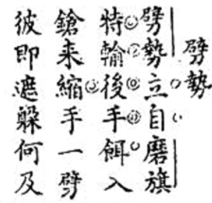 劈勢
劈勢立自磨旗
特輸後手餌入
鎗来縮手一劈
彼即遮躲何及